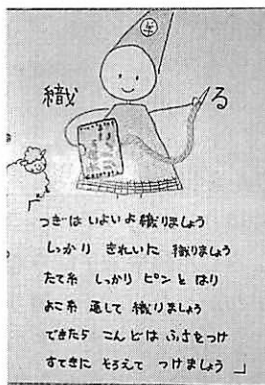 織る
つぎは いよいよ 織りましょう
しっかり きれいに 織りましょう
たて糸 しっかり ピンと はり
よこ糸 通して 織りましょう
できたら こんどは ふさをつけ
すてきに そろえて つけましょう」